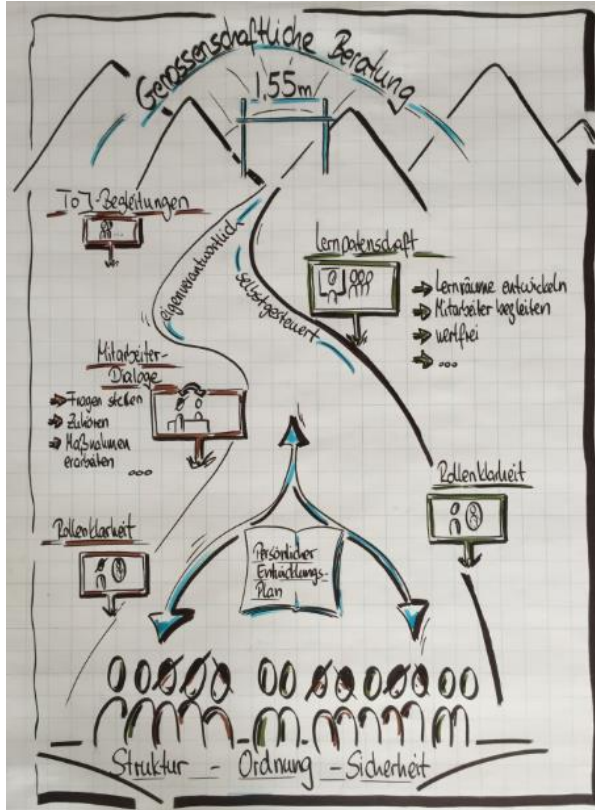 Genossenschaftliche Beratung
1,55m
ToJ-Begleitungen
eigenverantwortlich
selbstgesteuert
Lernpatenschaft
Lernräume entwickeln
Mitarbeiter begleiten
wertfrei
...
Mitarbeiter-
Dialoge
Fragen stellen
Zuhören
Maßnahmen
erarbeiten
...
Rollenklarheit
Rollenklarheit
Persönlicher
Entwicklungs-
Plan
Struktur - Ordnung - Sicherheit